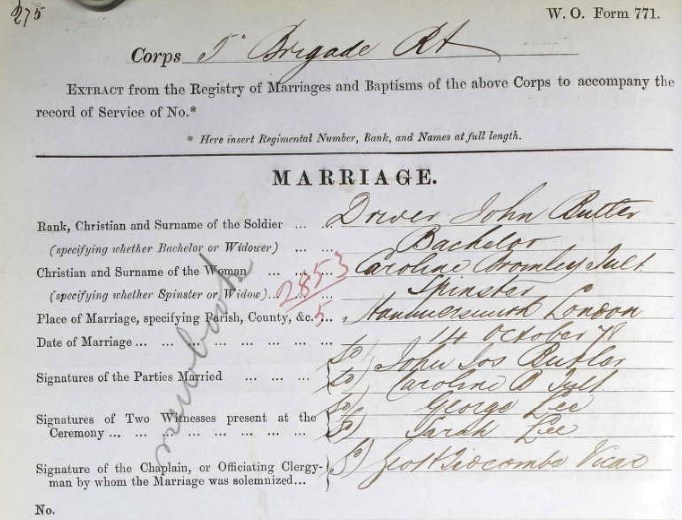 275
W. O. Form 771.
Corps 5th Brigade RA
EXTRACT from the Registry of Marriages and Baptisms of the above Corps to accompany the
record of Service of No.*
* Here insert Regimental Number, Rank, and Names at full length.
MARRIAGE.
Rank, Christian and Surname of the Soldier ... ... Driver John Butler
(specifying whether Bachelor or Widower) ... ... Bachelor
Christian and Surname of the Woman ... ... ... Caroline Bromley Tult
(specifying whether Spinster or Widow)... ... Spinster
2853
5
Place of Marriage, specifying Parish, County, &c. ... Hammersmith London
Date of Marriage... ... ... ... ... ... ... ... ... 14 October 78
Signatures of the Parties Married ... ... ... (Sd) John Jos Butler
(Sd) Caroline B Tult
Signatures of Two Witnesses present at the (Sd) George Lee
Ceremony ... ... ... ... ... ... ... ... ... (Sd) Sarah Lee
Signature of the Chaplain, or Officiating Clergy- (Sd) Geo H Vicar
man by whom the Marriage was solemnized...
No.